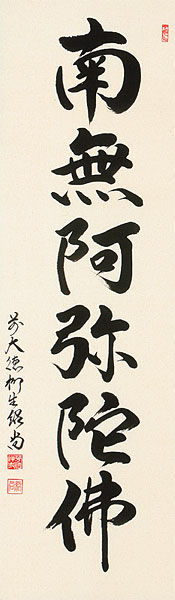 南無阿弥陀佛
前大徳柳生紹尚